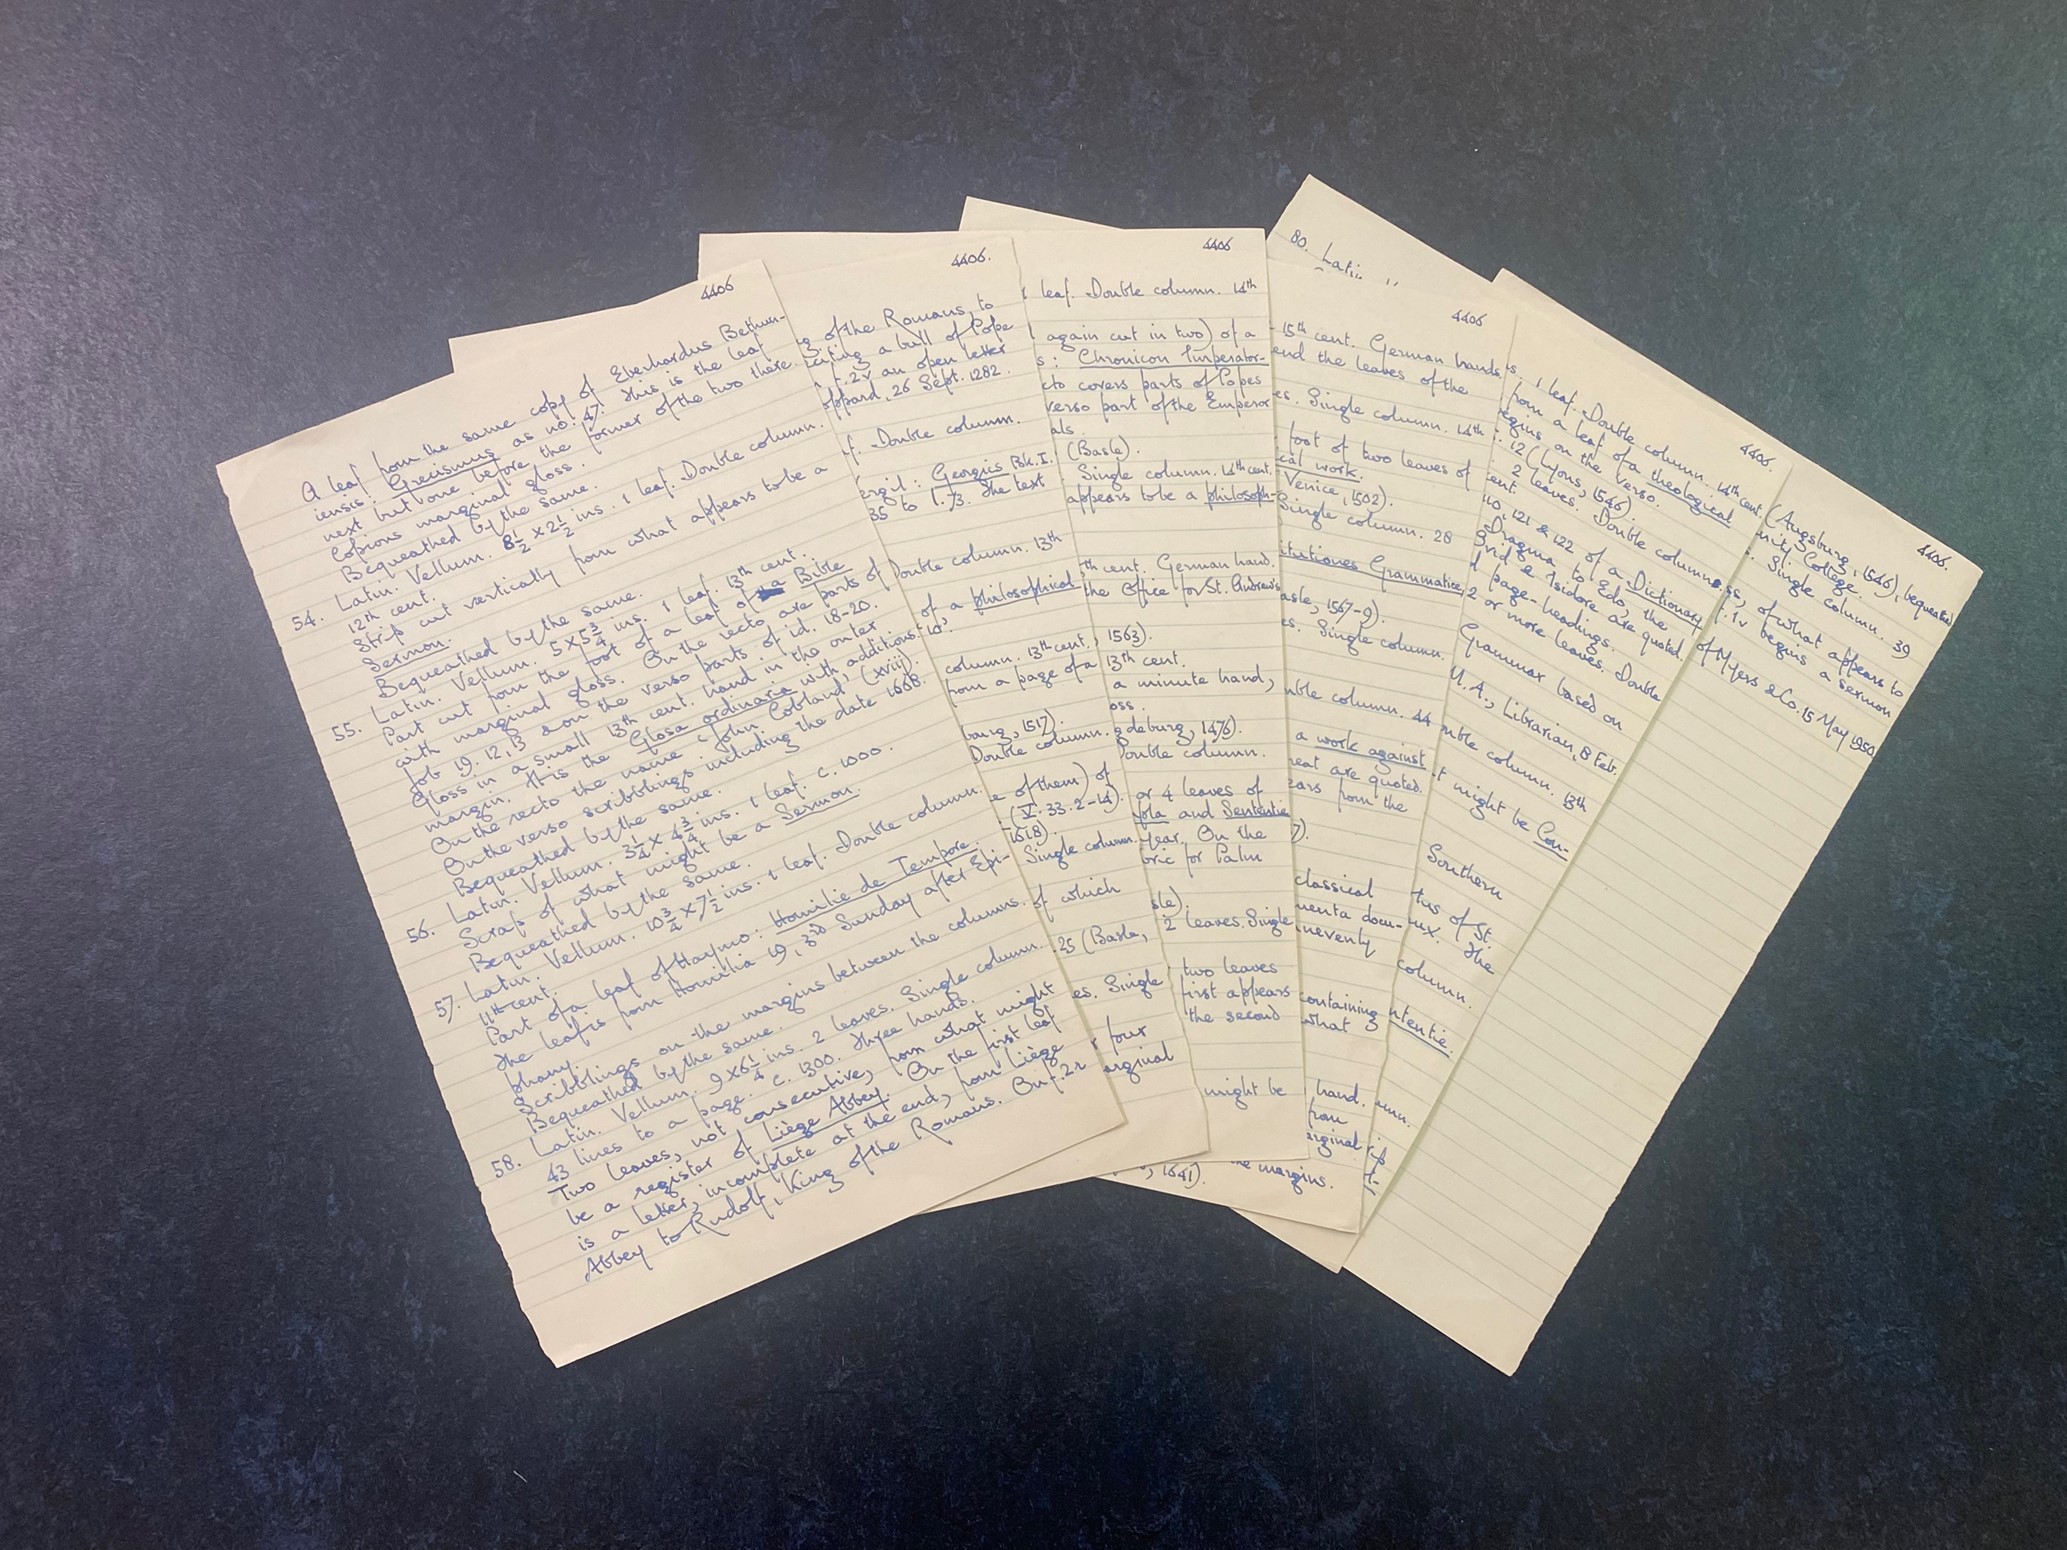 4406
A leaf from the same copy of Eberhardus Bethun-
iensis: Grecismus as no. 47. This is the leaf
next but one before the former of the two there.
Copious marginal gloss.
Bequeathed by the same.
54. Latin. Vellum. 8½ x 2½ ins. 1 leaf. Double column.
12th cent.
Strip cut vertically from what appears to be a
Sermon.
Bequeathed by the same.
55. Latin. Vellum. 5 x 5¾ ins. 1 leaf. 13th cent.
Part cut from the foot of a leaf of a Bible
with marginal gloss. On the recto are parts of
Job 19. 12, 13 & on the verso parts of id. 18-20.
Gloss in a small 13th cent. hand in the outer
margin. It is the Glosa ordinaria with additions.
On the recto the name 'John Cobland' (xviii).
On the verso scribblings including the date 1668.
Bequeathed by the same.
56. Latin. Vellum. 3¼ x 4¾ ins. 1 leaf. c. 1000.
Scrap of what might be a Sermon.
Bequeathed by the same.
57. Latin. Vellum. 10¾ x 7½ ins. 1 leaf. Double column.
11th cent.
Part of a leaf of Haymo: Homilie de Tempore.
The leaf is from Homilia 19, 3rd Sunday after Epi-
phany.
Scribblings on the margins between the columns.
Bequeathed by the same.
58. Latin. Vellum. 9 x 6¼ ins. 2 leaves. Single column.
43 lines to a page. c. 1300. Three hands.
Two leaves, not consecutive, from what might
be a register of Liège Abbey. On the first leaf
is a letter, incomplete at the end, from Liège
Abbey to Rudolf, King of the Romans. On f. 2r
4406.
of the Romans, to
a bull of Pope
f. 2v an open letter
26 Sept. 1282.
Double column.
Georgics Bk. I.
35 to l. 73. The text
Double column. 13th
of a philosophical
column. 13th cent.
from a page of a
1517).
Double column.
of them) of
(V. 33. 2-14).
1618).
Single column.
of which
25 (Basle,
Single
four
marginal
4406
leaf. Double column. 14th
again cut in two) of a
Chronicon Imperator-
covers parts of Popes
verso part of the Emperor
(Basle).
Single column. 14th cent.
appears to be a philosoph-
cent. German hand.
the Office for St. Andrew's
1563).
13th cent.
a minute hand,
1476).
Double column.
or 4 leaves of
and Sententie
Year. On the
for Palm
2 leaves. Single
two leaves
first appears
the second
might be
1641).
80. Latin
4406
15th cent. German hands.
end the leaves of the
Single column. 14th
foot of two leaves of
work.
Venice, 1502).
Single column. 28
Grammatice,
1567-9).
Single column.
column. 44
a work against
are quoted.
from the
classical
unevenly
containing
what
hand.
from
marginal
the margins.
4406.
1 leaf. Double column. 14th cent.
from a leaf of a theological
on the verso.
12 (Lyons, 1546).
2 leaves. Double column.
121 & 122 of a Dictionary
Dragma to Edo, the
& Isidore are quoted.
page-headings.
2 or more leaves. Double
Grammar based on
M.A., Librarian, 8 Feb.
column. 13th
might be Con-
Southern
of St.
The
column.
4406.
(Augsburg, 1546), bequeathed
College.
Single column. 39
of what appears to
f. 1v begins a sermon
of Myers & Co. 15 May 1950